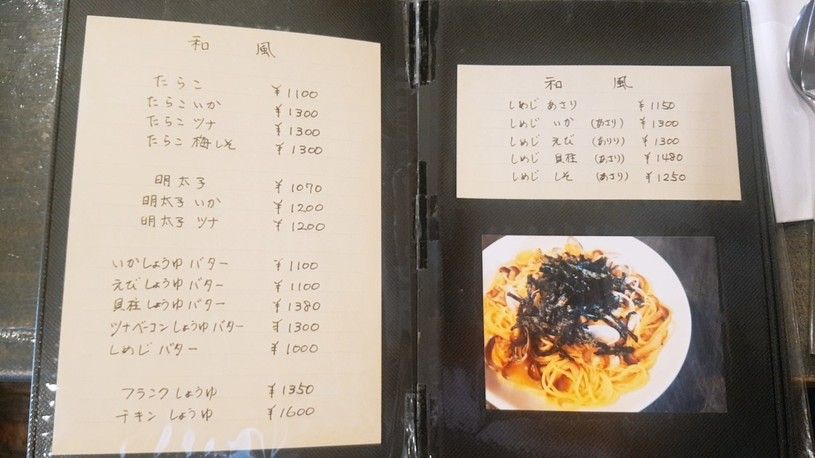 和 風
たらこ ¥1100
たらこ いか ¥1300
たらこ ツナ ¥1300
たらこ 梅しそ ¥1300
明太子 ¥1070
明太子 いか ¥1200
明太子 ツナ ¥1200
いかしょうゆバター ¥1100
えびしょうゆバター ¥1100
貝柱しょうゆバター ¥1380
ツナベーコンしょうゆバター ¥1300
しめじバター ¥1000
フランクしょうゆ ¥1350
チキンしょうゆ ¥1600
和 風
しめじ あさり ¥1150
しめじ いか (あさり) ¥1300
しめじ えび (あさり) ¥1300
しめじ 貝柱 (あさり) ¥1480
しめじ しそ (あさり) ¥1250